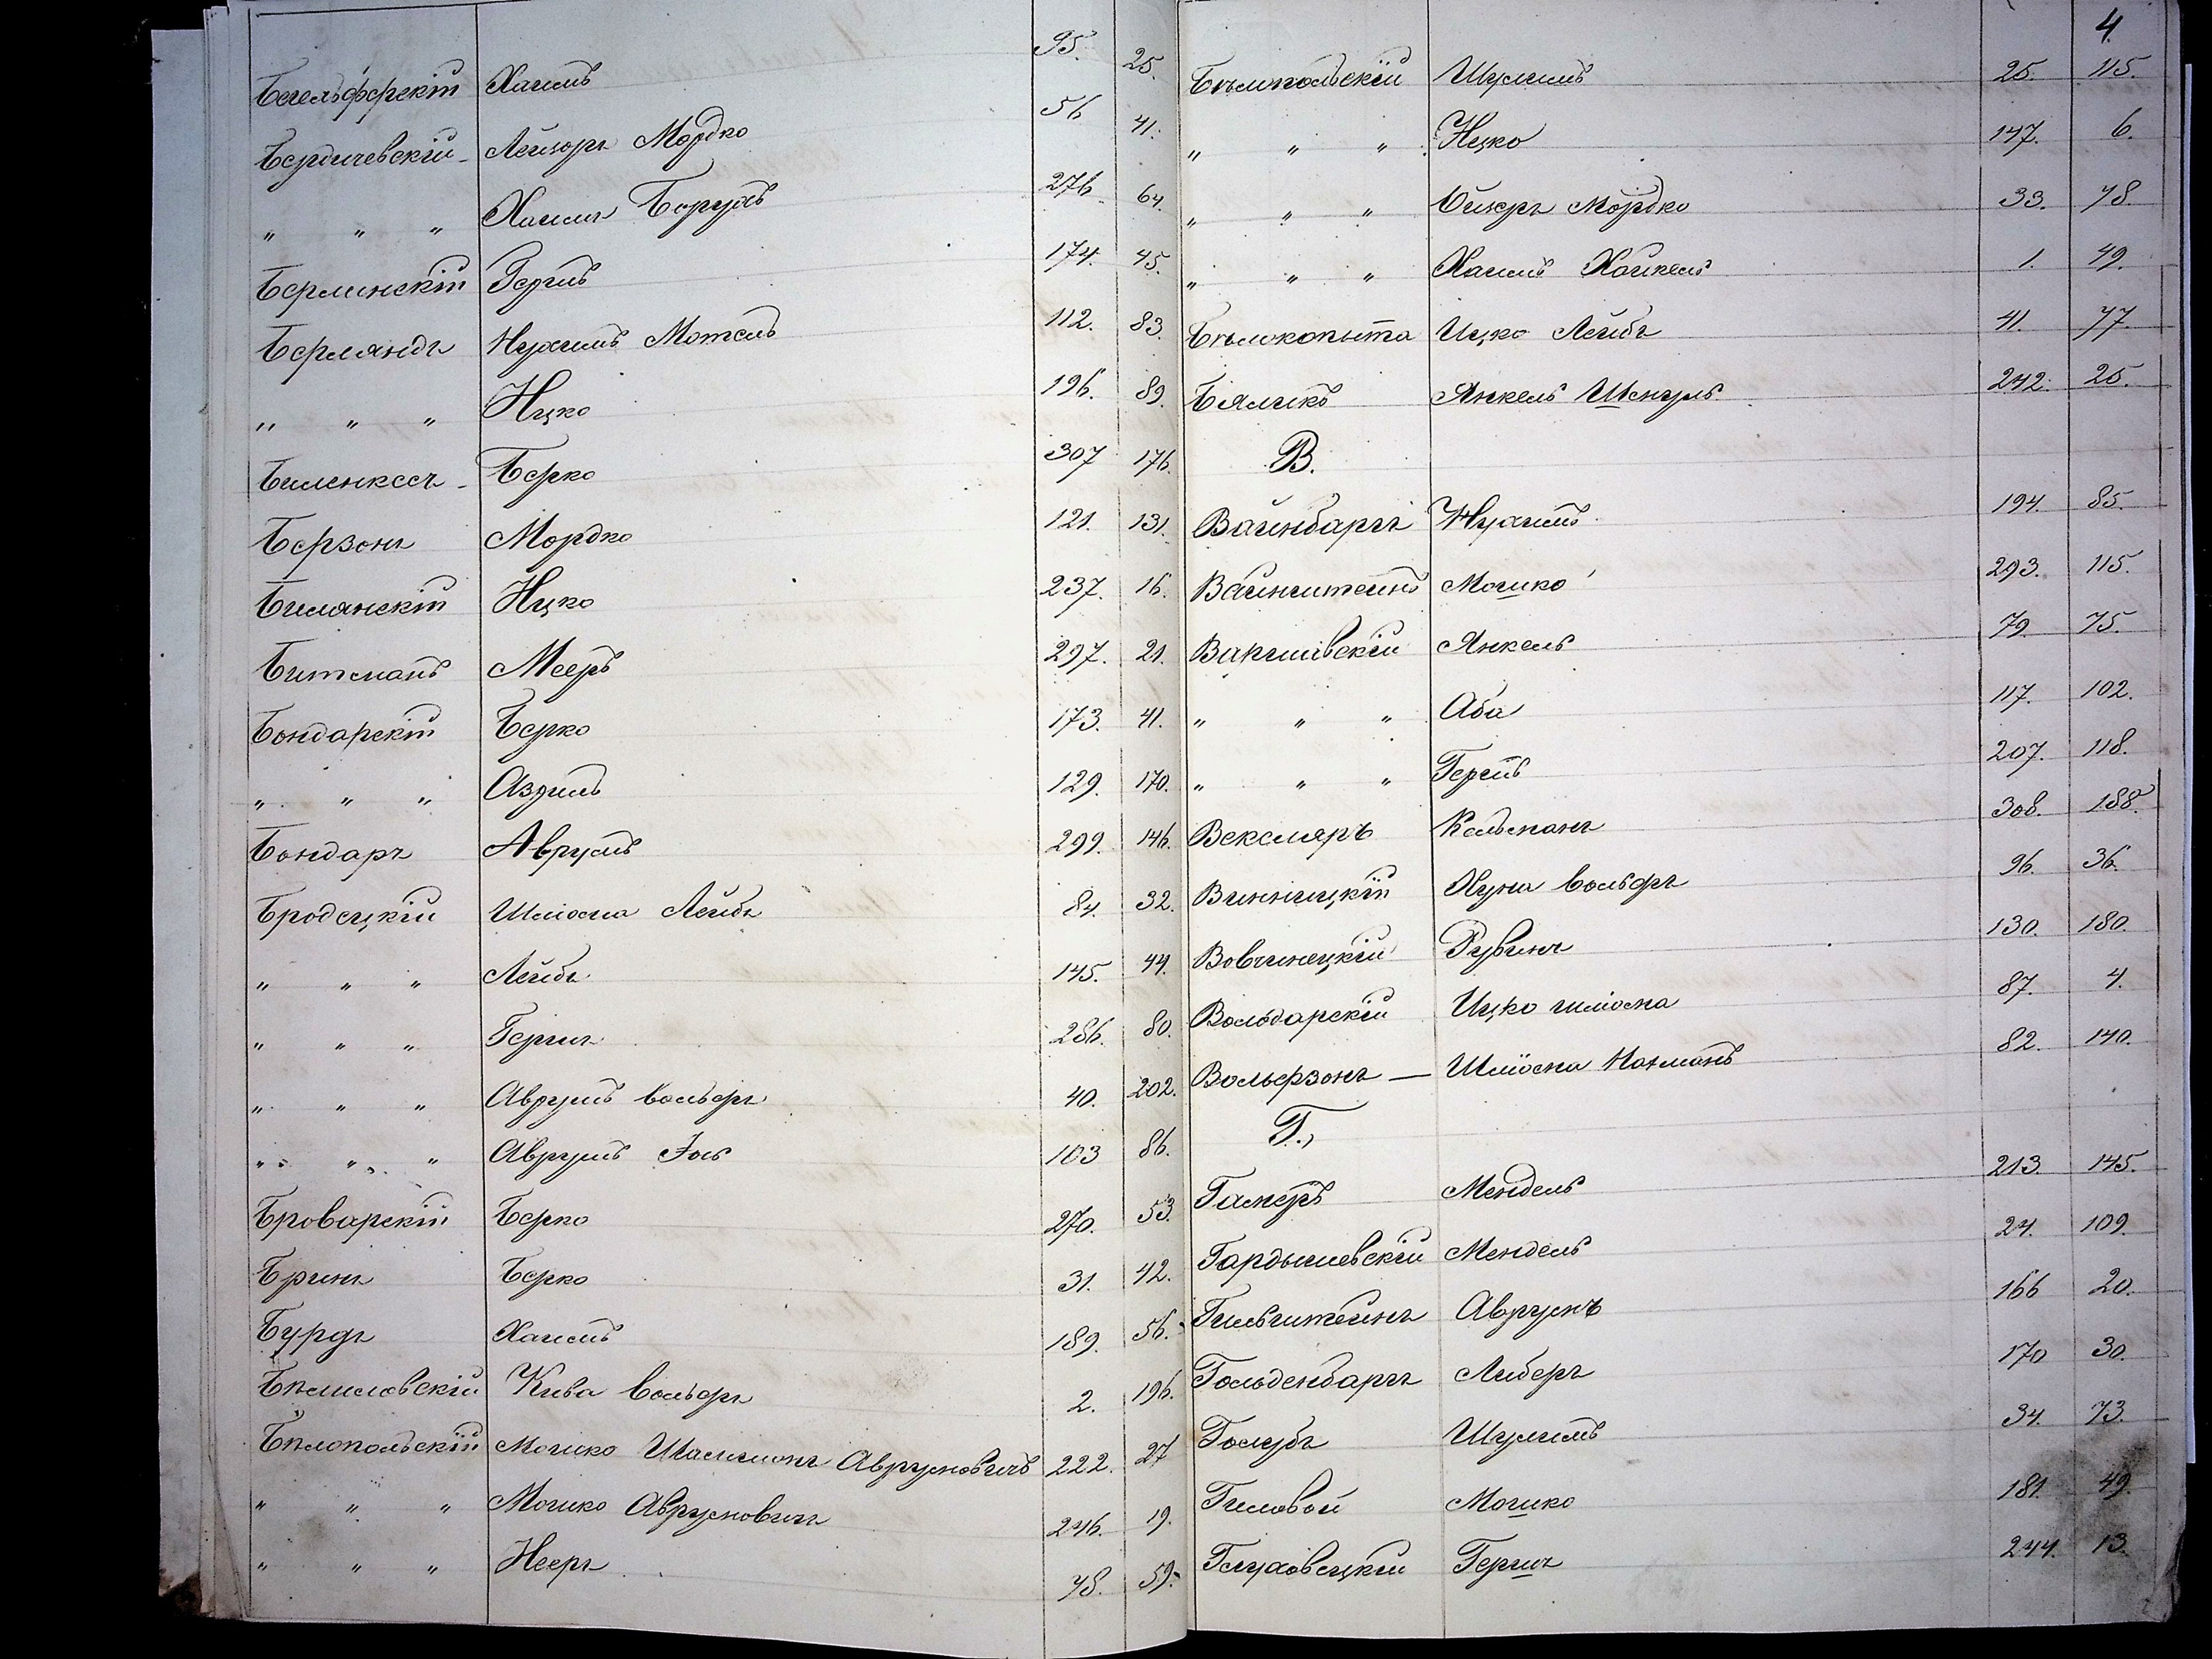 Бегельфферскій Хаимъ 95. 25.
Бердичевскій Лейзоръ Мордко 56 41.
„ „ „ Хаимъ Борухъ 276 64.
Берлинскій Гершъ 174. 45.
Берляндъ Нухимъ Мотель 112. 83.
„ „ „ Ицко 196. 89.
Биленкесъ Берко 307 176.
Берзонъ Мордко 121. 131.
Билянскій Ицко 237. 16.
Битманъ Мееръ 297. 21.
Бондарскій Берко 173. 41.
„ „ „ Азриль 129. 170.
Бондаръ Аврумъ 299. 146.
Бродецкій Шліома Лейбъ 84. 32.
„ „ „ Лейбъ 145. 44.
„ „ „ Гершъ 286. 80.
„ „ „ Аврумъ Вольфъ 40. 202.
„ „ „ Аврумъ Іось 103 86.
Броварскій Берко 270. 53.
Бринъ Берко 31. 42.
Бурдъ Хаимъ 189. 56.
Бѣлиловскій Кива Вольфъ 2. 196.
Бѣлопольскій Мошко Шамшонъ Аврумовичъ 222. 27
„ „ „ Мошко Аврумовичъ 246. 19.
„ „ „ 78. 59.
4.
Бѣлопольскій Шулимъ 25. 115.
„ „ „ Ицко 147. 6.
„ „ „ Ойзеръ Мордко 33. 78.
„ „ „ Хаимъ Хайкель 1. 49.
Бѣлокопыта Ицко Лейбъ 41. 77.
Бяликъ Янкель Шмуль 242. 25.
В.
Вайнбаргъ Нухимъ 194. 85.
Вайнштейнъ Мошко 293. 115.
Варшавскій Янкель 79. 75.
„ „ „ Аба 117. 102.
„ „ „ Гершъ 207. 118.
Векслярь Кельманъ 308. 188.
Винницкій Хуна Вольфъ 96. 36.
Вовчинецкій Рувинъ 130. 180.
Вольдарскій Ицко Шліома 87. 4.
Вольфзонъ — Шліома Нахманъ 82. 140.
Г.,
Гамеръ Мендель 213. 145.
Гардышевскій Мендель 24. 109.
Гильштейнъ Аврумъ 166 20.
Гольденбаргъ Либеръ 170 30.
Голубъ Шулимъ 34. 73.
Гиловой Мошко 181. 49.
Глуховецкій Гершъ 244. 13.